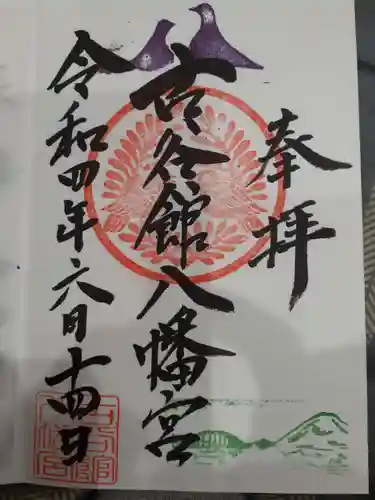 奉拝
古今館八幡宮
令和四年六月十四日